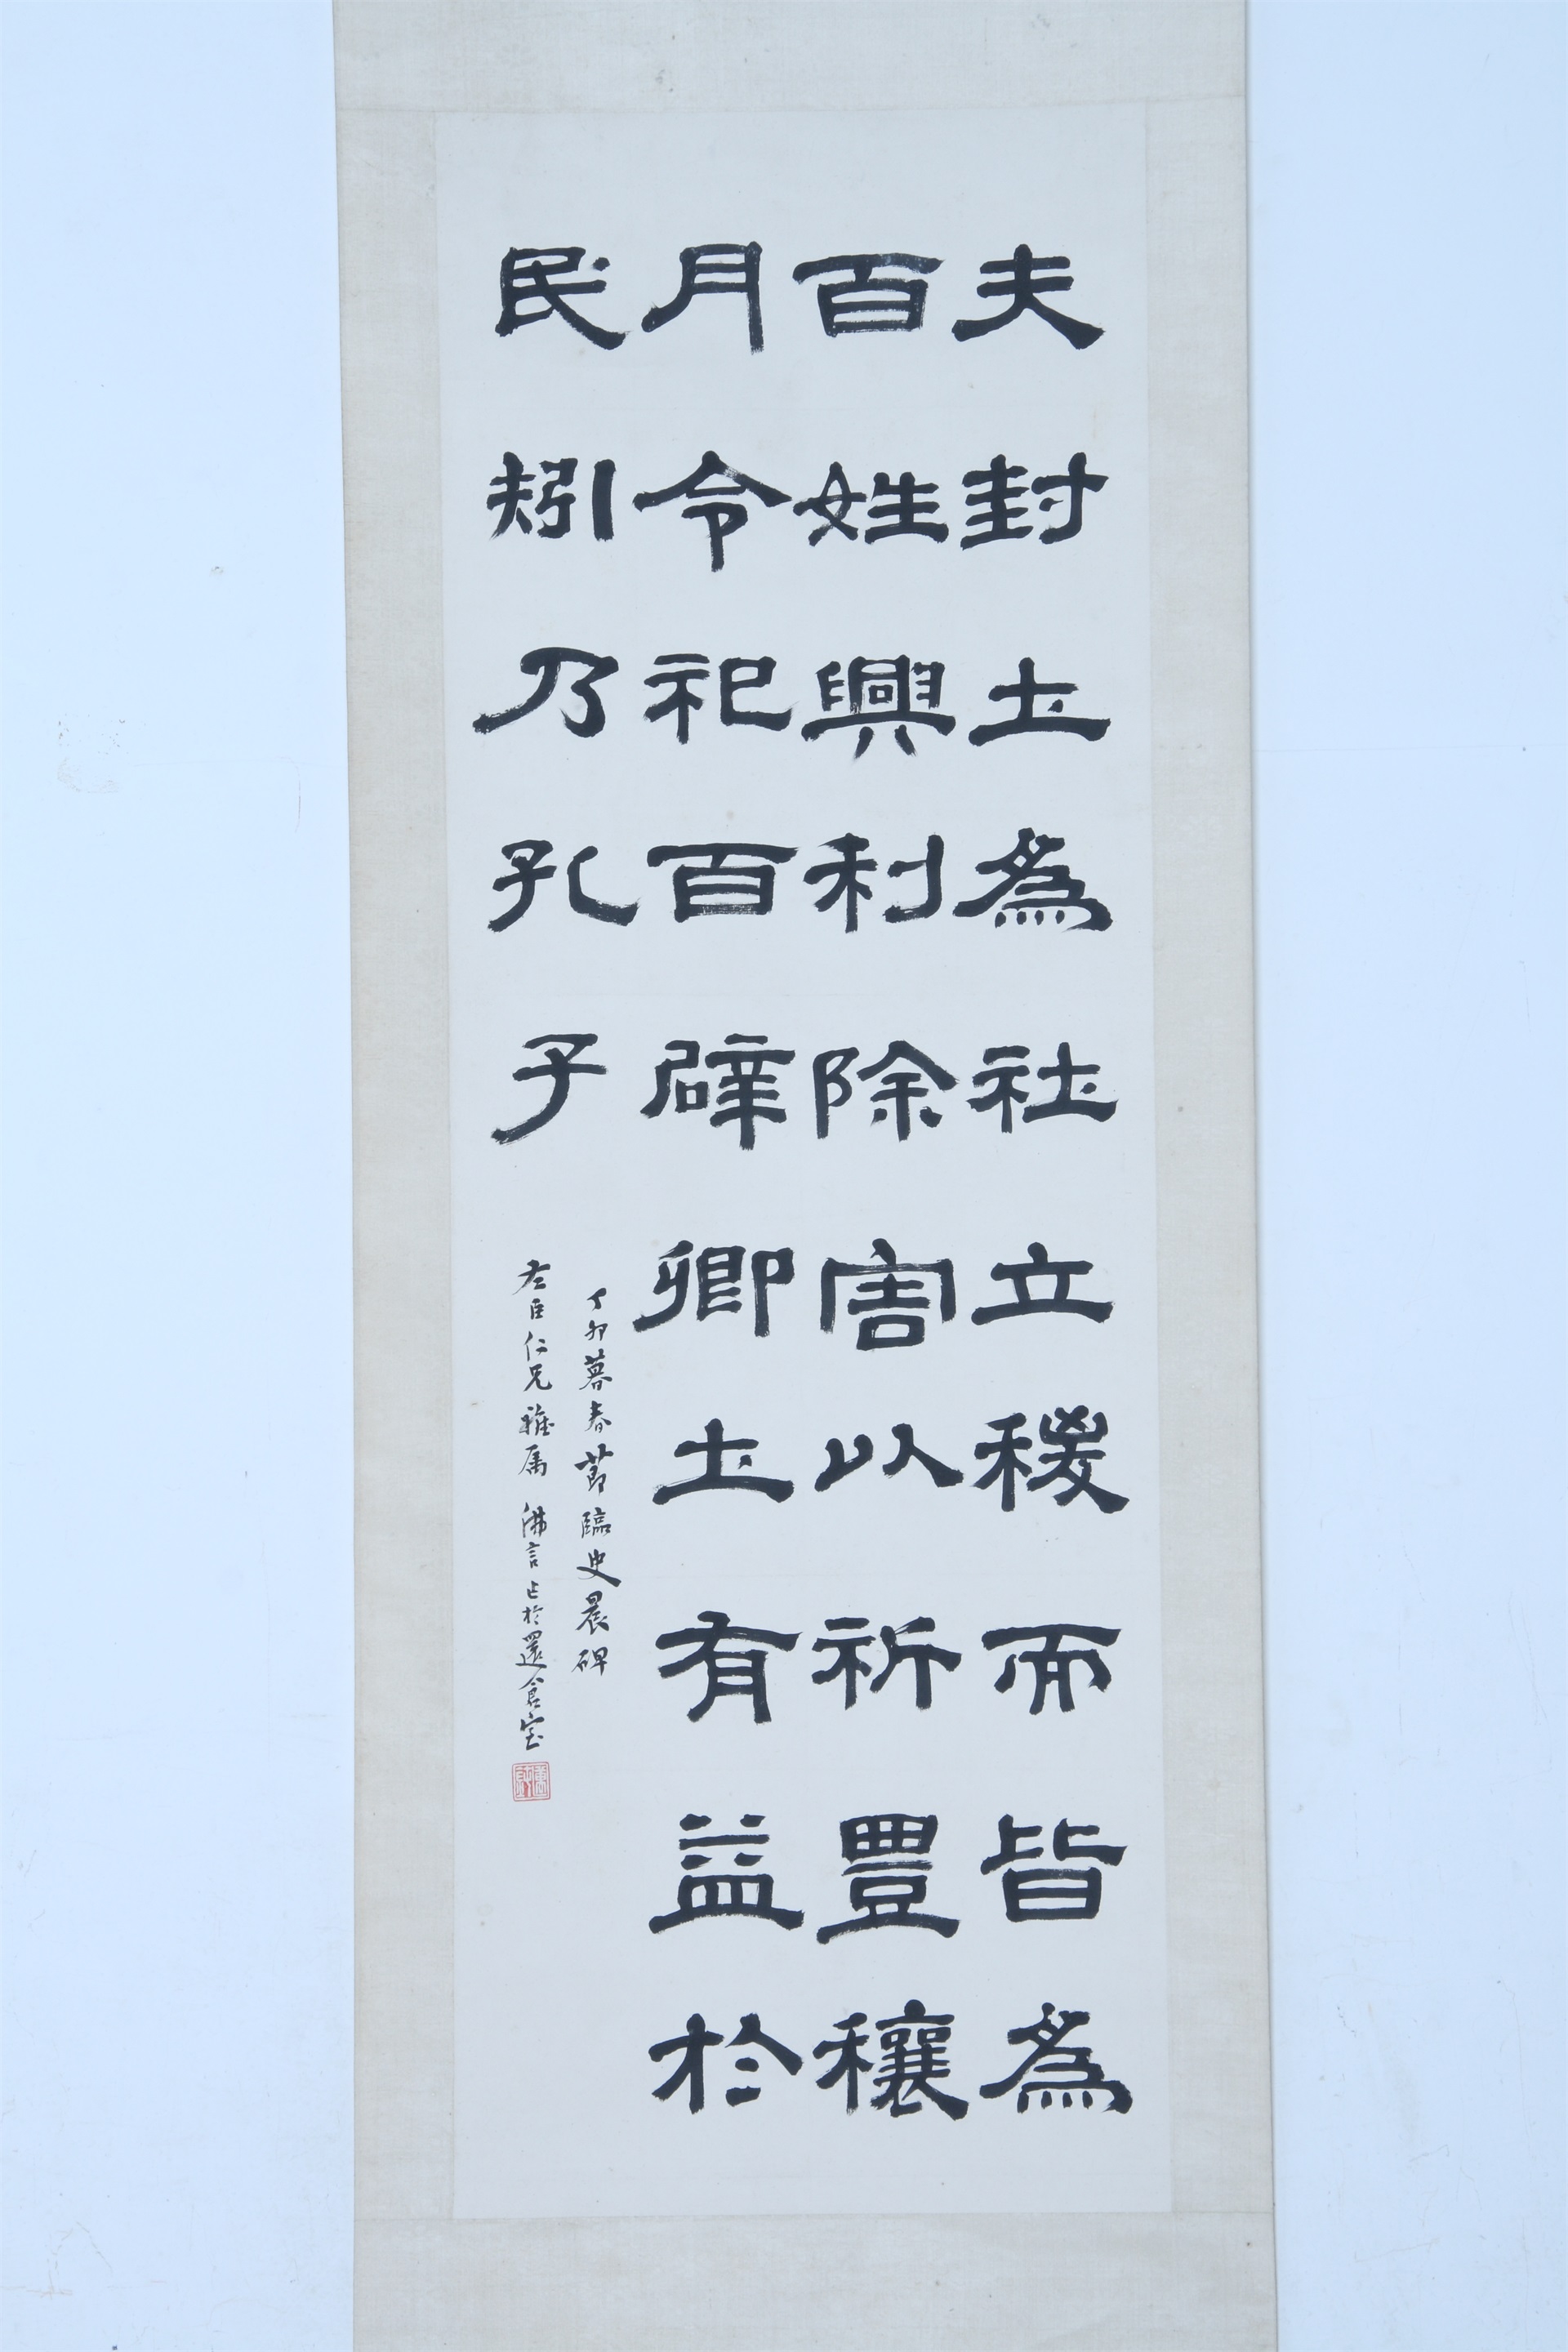 夫封土為社立稷而皆為
百姓興利除害以祈豐穰
月令祀百辟卿士有益於
民矧乃孔子
丁卯暮春節臨史晨碑
左臣仁兄雅属 沸言作於還倉室